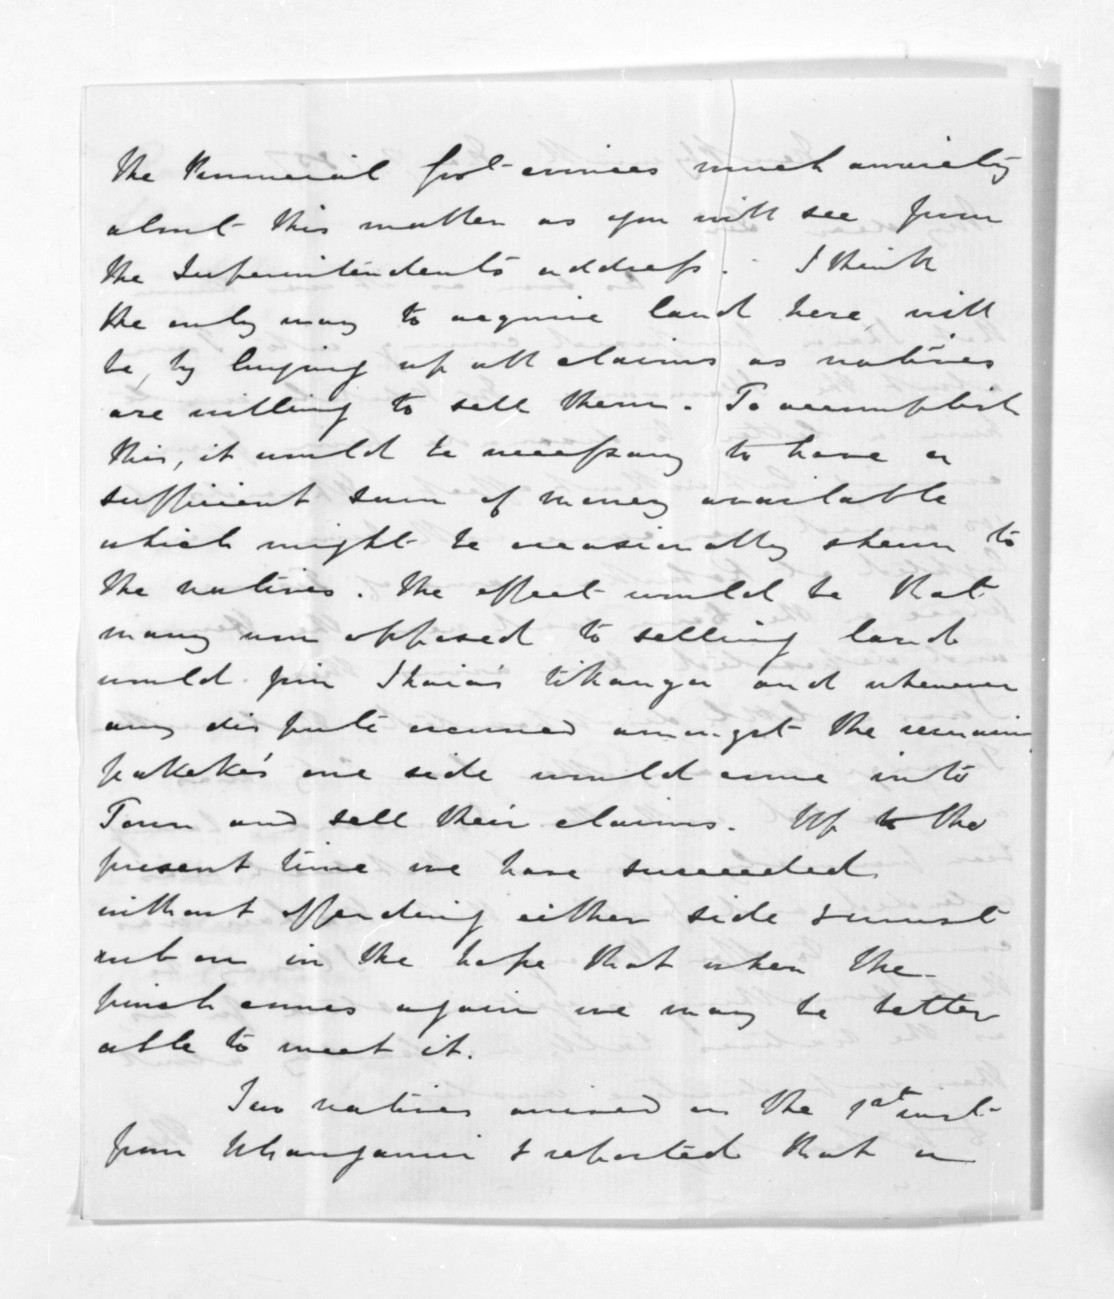 the Provincial Govt evinces much anxiety
about this matter as you will see from
the Superintendents address. - I think
the only way to acquire land here will
be, by buying up all claims as natives
are willing to sell them. To accomplish
this, it would be necessary to have a
sufficient sum of money available
which might be occasionally shewn to
the natives. The effect would be that
many now opposed to selling land
would join Ihaia's tikanga and whenever
any dispute occurred amongst the remaing
pakeke's one side would come into
Town and sell their claims. Up to the
present time we have succeeded
without offending either side & must
rub on in the hope that when the
pinch comes again we may be better
able to meet it.
Two natives arrived on the 1st inst
from Whanganui & reported that a